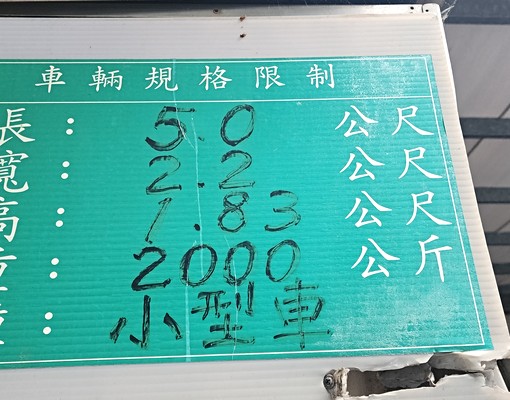 車輛規格限制
長：5.0公尺
寬：2.2公尺
高：1.83公尺
：2000公斤
：小型車